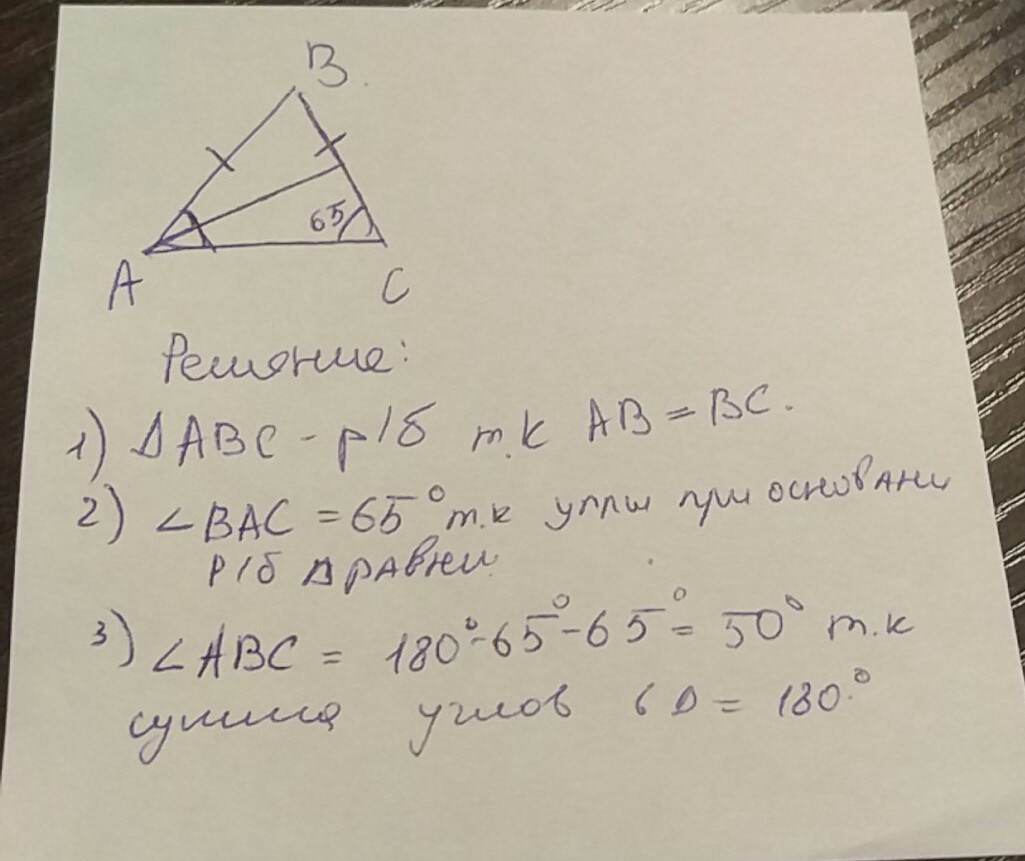 B
65
A
C
Решение:
1) ΔABC - р/б т.к AB = BC.
2) ∠BAC = 65° т.к углы при основани
р/б Δ равны
3) ∠ABC = 180°-65°-65° = 50° т.к
сумма углов в Δ = 180.°